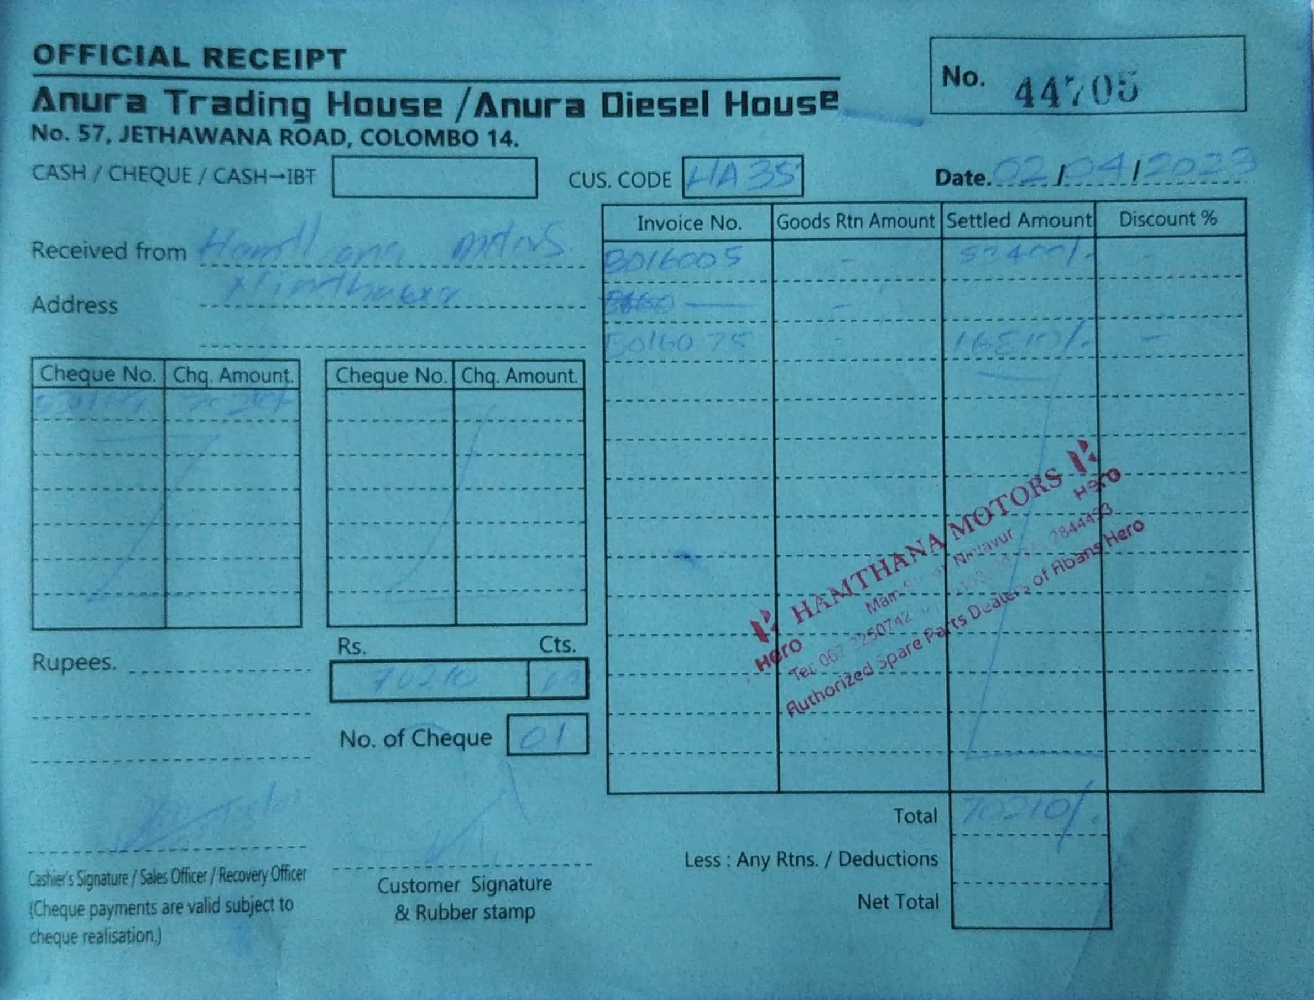 OFFICIAL RECEIPT
No. 44705
Anura Trading House /Anura Diesel House
No. 57, JETHAWANA ROAD, COLOMBO 14.
CASH / CHEQUE / CASH→IBT
CUS. CODE HA 35
Date. 02/04/2023
Received from
Address
Invoice No. Goods Rtn Amount Settled Amount Discount %
B016005 -
-
B016075 - -
Cheque No. Chq. Amount.
Cheque No. Chq. Amount.
HAMTHANA MOTORS
Hero Hero
Authorized Spare Parts Dealers of Abans Hero
Rupees.
Rs. Cts.
70210
No. of Cheque 01
Total 70210/.
Less : Any Rtns. / Deductions
Net Total
Cashier's Signature / Sales Officer / Recovery Officer
(Cheque payments are valid subject to
cheque realisation.)
Customer Signature
& Rubber stamp